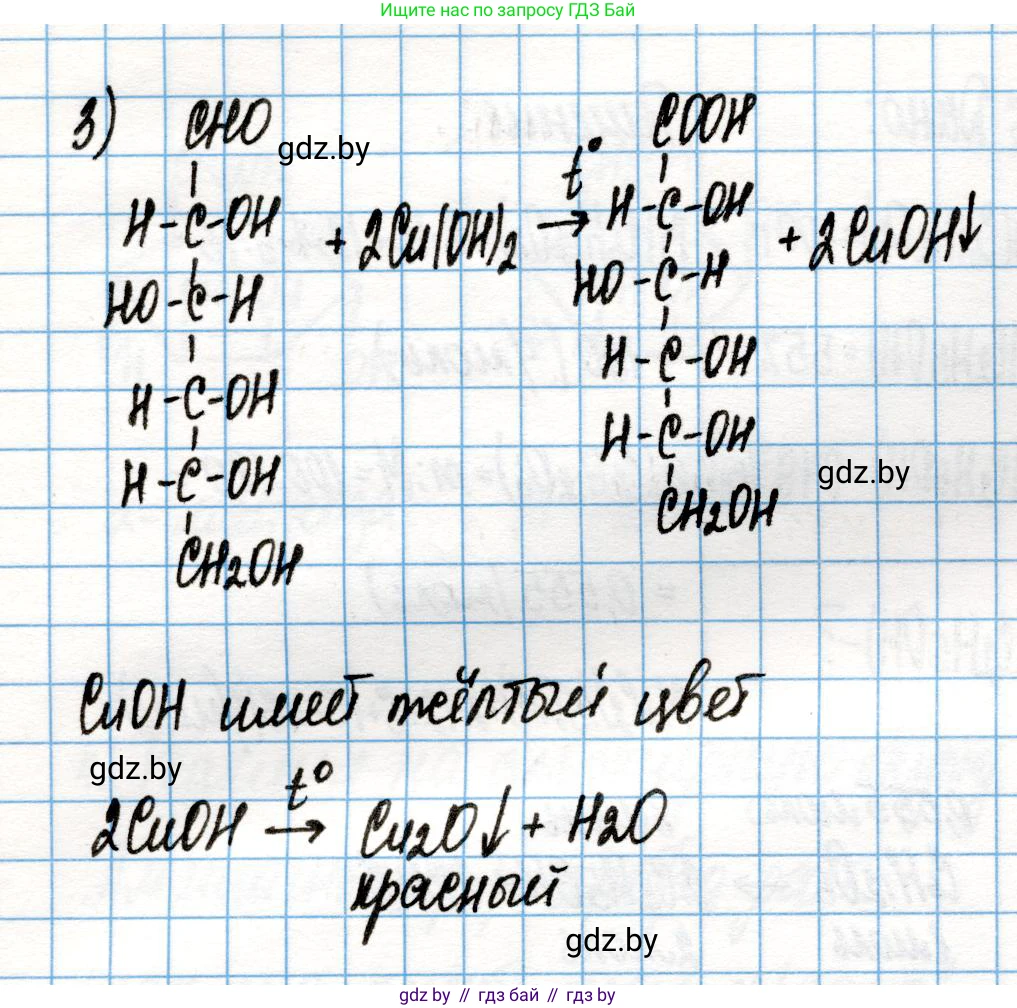 Ищите нас по запросу ГДЗ Бай
3) CHO COOH
gdz.by
H-C-OH + 2Cu(OH)2 t° → H-C-OH + 2CuOH↓
HO-C-H HO-C-H
H-C-OH H-C-OH
H-C-OH H-C-OH
gdz.by
CH2OH CH2OH
CuOH имеет жёлтый цвет
gdz.by
2CuOH t° → Cu2O↓ + H2O
красный
gdz.by
gdz by // гдз бай // гдз by